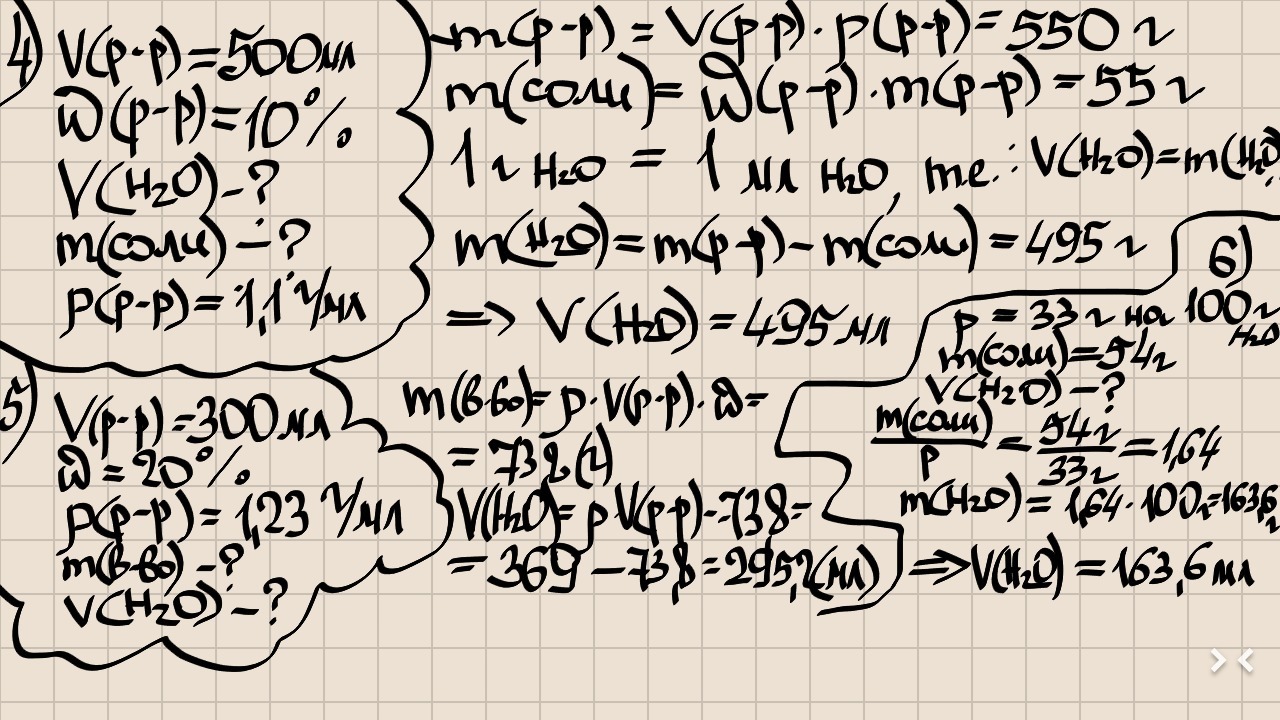 4)
V(р-р)=500мл
W(р-р)=10%
V(H₂O)-?
m(соли) -?
p(р-р)=1,1 г/мл
m(р-р) = V(р-р)·p(р-р)=550 г
m(соли)= W(р-р)·m(р-р) =55 г
1 г H₂O = 1 мл H₂O, т.е.: V(H₂O)=m(H₂O)
m(H₂O)=m(р-р)-m(соли) =495 г
=> V(H₂O) =495 мл
5)
V(р-р) =300мл
W = 20%
p(р-р)= 1,23 г/мл
m(в-во) -?
V(H₂O) -?
m(в-во)= p·V(р-р)·W=
= 73,8(г)
V(H₂O)= p V(р-р)-738=
= 369 -73,8=295,2(мл)
6)
p = 33 г на 100г
H₂O
m(соли)=54г
V(H₂O) -?
m(соли)/p = 54г/33г =1,64
m(H₂O)= 1,64·100г=163,6
г
=>V(H₂O) =163,6 мл